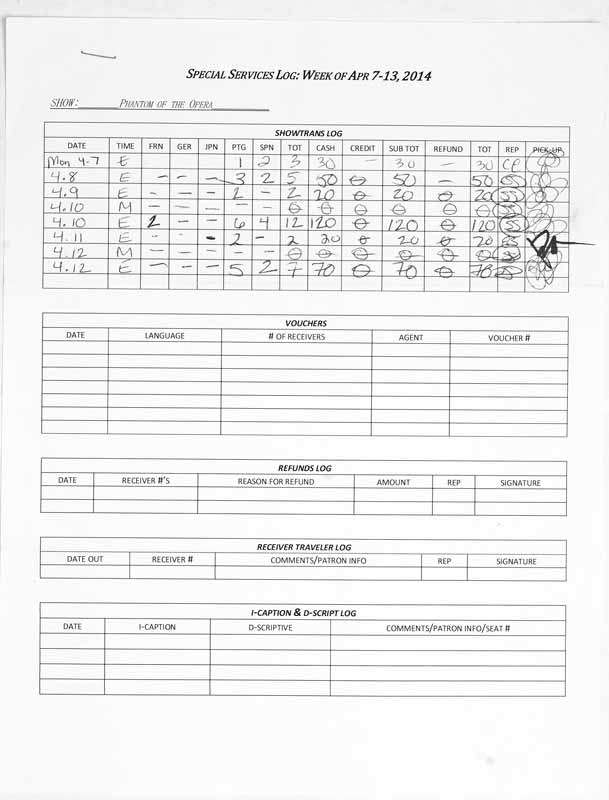 SPECIAL SERVICES LOG: WEEK OF APR 7-13, 2014
SHOW: PHANTOM OF THE OPERA
SHOWTRANS LOG
DATE TIME FRN GER JPN PTG SPN TOT CASH CREDIT SUB TOT REFUND TOT REP PICK-UP
Mon 4-7 E 1 2 3 30 — 30 — 30 CP
4.8 E - - - 3 2 5 50 0 50 - 50 SS
4.9 E - - - 2 - 2 20 0 20 0 20 SS
4.10 M - - - - - 0 0 0 0 0 0 SS
4.10 E 2 - - 6 4 12 120 0 120 0 120 SS
4.11 E - - - 2 - 2 20 0 20 0 20 SS
4.12 M - - - - - 0 0 0 0 0 0 SS
4.12 E - - - 5 2 7 70 0 70 0 70 SS
VOUCHERS
DATE LANGUAGE # OF RECEIVERS AGENT VOUCHER #
REFUNDS LOG
DATE RECEIVER #'S REASON FOR REFUND AMOUNT REP SIGNATURE
RECEIVER TRAVELER LOG
DATE OUT RECEIVER # COMMENTS/PATRON INFO REP SIGNATURE
I-CAPTION & D-SCRIPT LOG
DATE I-CAPTION D-SCRIPTIVE COMMENTS/PATRON INFO/SEAT #